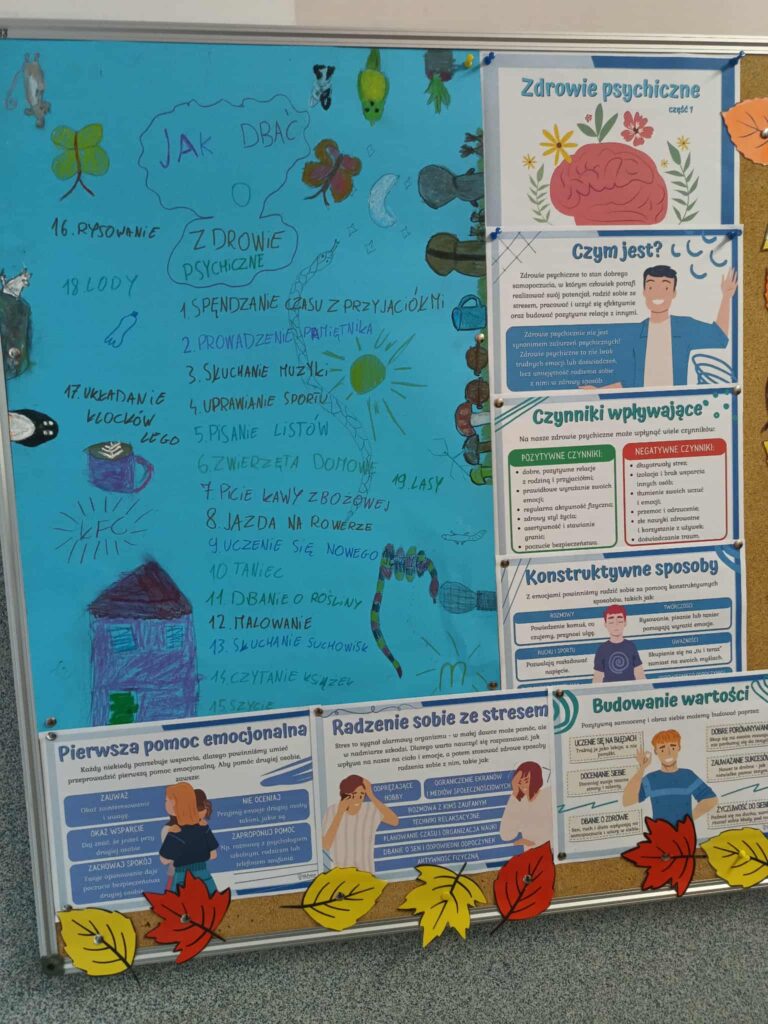 JAK DBAĆ
O
ZDROWIE
PSYCHICZNE
16. RYSOWANIE
18. LODY
1. SPĘNDZANIE CZASU Z PRZYJACIÓŁMI
2. PROWADZENIE PAMIĘTNIKA
3. SŁUCHANIE MUZYKI
4. UPRAWIANIE SPORTU
5. PISANIE LISTÓW
6. ZWIERZĘTA DOMOWE
7. PICIE KAWY ZBOŻOWEJ
8. JAZDA NA ROWERZE
9. UCZENIE SIĘ NOWEGO
10. TANIEC
11. DBANIE O ROŚLINY
12. MALOWANIE
13. SŁUCHANIE SUCHOWISK
14. CZYTANIE KSIĄŻEK
15. SZYCIE
17. UKŁADANIE
KLOCKÓW
LEGO
19. LASY
KFC
M
Zdrowie psychiczne
część 1
Czym jest?
Zdrowie psychiczne to stan dobrego
samopoczucia, w którym człowiek potrafi
realizować swój potencjał, radzić sobie ze
stresem, pracować i uczyć się efektywnie
oraz budować pozytywne relacje z innymi.
Zdrowie psychiczne nie jest
synonimem zaburzeń psychicznych!
Zdrowie psychiczne to nie brak
trudnych emocji, lecz umiejętność radzenia sobie
z nimi w zdrowy sposób.
Czynniki wpływające
Na nasze zdrowie psychiczne może wpłynąć wiele czynników:
POZYTYWNE CZYNNIKI:
dobre, pozytywne relacje
z rodziną i przyjaciółmi;
prawidłowe wyrażanie swoich
emocji;
regularna aktywność fizyczna;
zdrowy styl życia;
asertywność i stawianie
granic;
poczucie bezpieczeństwa.
NEGATYWNE CZYNNIKI:
długotrwały stres;
izolacja i brak wsparcia
innych osób;
tłumienie swoich uczuć
i emocji;
przemoc i odrzucenie;
złe nawyki zdrowotne
i korzystanie z używek;
doświadczanie traum.
Konstruktywne sposoby
Z emocjami powinniśmy radzić sobie za pomocą konstruktywnych
sposobów, takich jak:
ROZMOWY
Powiedzenie komuś, co
czujemy, przynosi ulgę.
TWÓRCZOŚCI
Rysowanie, pisanie lub taniec
pomagają wyrazić emocje.
RUCHU I SPORTU
Pozwalają rozładować
napięcie.
UWAŻNOŚCI
Skupienie się na „tu i teraz”
zamiast na swoich myślach.
Pierwsza pomoc emocjonalna
Każdy niekiedy potrzebuje wsparcia, dlatego powinniśmy umieć
przeprowadzić pierwszą pomoc emocjonalną. Aby pomóc drugiej osobie,
zawsze:
ZAUWAŻ
Okaż zainteresowanie
i uwagę.
OKAŻ WSPARCIE
Daj znać, że jesteś przy
drugiej osobie.
ZACHOWAJ SPOKÓJ
Twoje opanowanie daje
poczucie bezpieczeństwa
drugiej osobie.
NIE OCENIAJ
Przyjmij emocje drugiej osoby
takimi, jakie są.
ZAPROPONUJ POMOC
Np. rozmowę z psychologiem
szkolnym, rodzicem lub
telefonem zaufania.
Radzenie sobie ze stresem
Stres to sygnał alarmowy organizmu - w małej dawce może pomóc, ale
w nadmiarze szkodzi. Dlatego warto nauczyć się rozpoznawać, jak
wpływa na nasze ciało i emocje, a potem stosować zdrowe sposoby
radzenia sobie z nim, takie jak:
ODPRĘŻAJĄCE
HOBBY
OGRANICZENIE EKRANÓW
I MEDIÓW SPOŁECZNOŚCIOWYCH
ROZMOWA Z KIMŚ ZAUFANYM
TECHNIKI RELAKSACYJNE
PLANOWANIE CZASU I ORGANIZACJA NAUKI
DBANIE O SEN I ODPOWIEDNI ODPOCZYNEK
AKTYWNOŚĆ FIZYCZNA
Budowanie wartości
Pozytywną samoocenę i obraz siebie możemy budować poprzez:
UCZENIE SIĘ NA BŁĘDACH
Traktuj je jako lekcje, a nie
porażki.
DOCENIANIE SIEBIE
DBANIE O ZDROWIE
Sen, ruch i dieta wpływają na
samopoczucie i wiarę w siebie.
DOBRE PORÓWNYWANIE
ZAUWAŻANIE SUKCESÓW
ŻYCZLIWOŚĆ DO SIEBIE